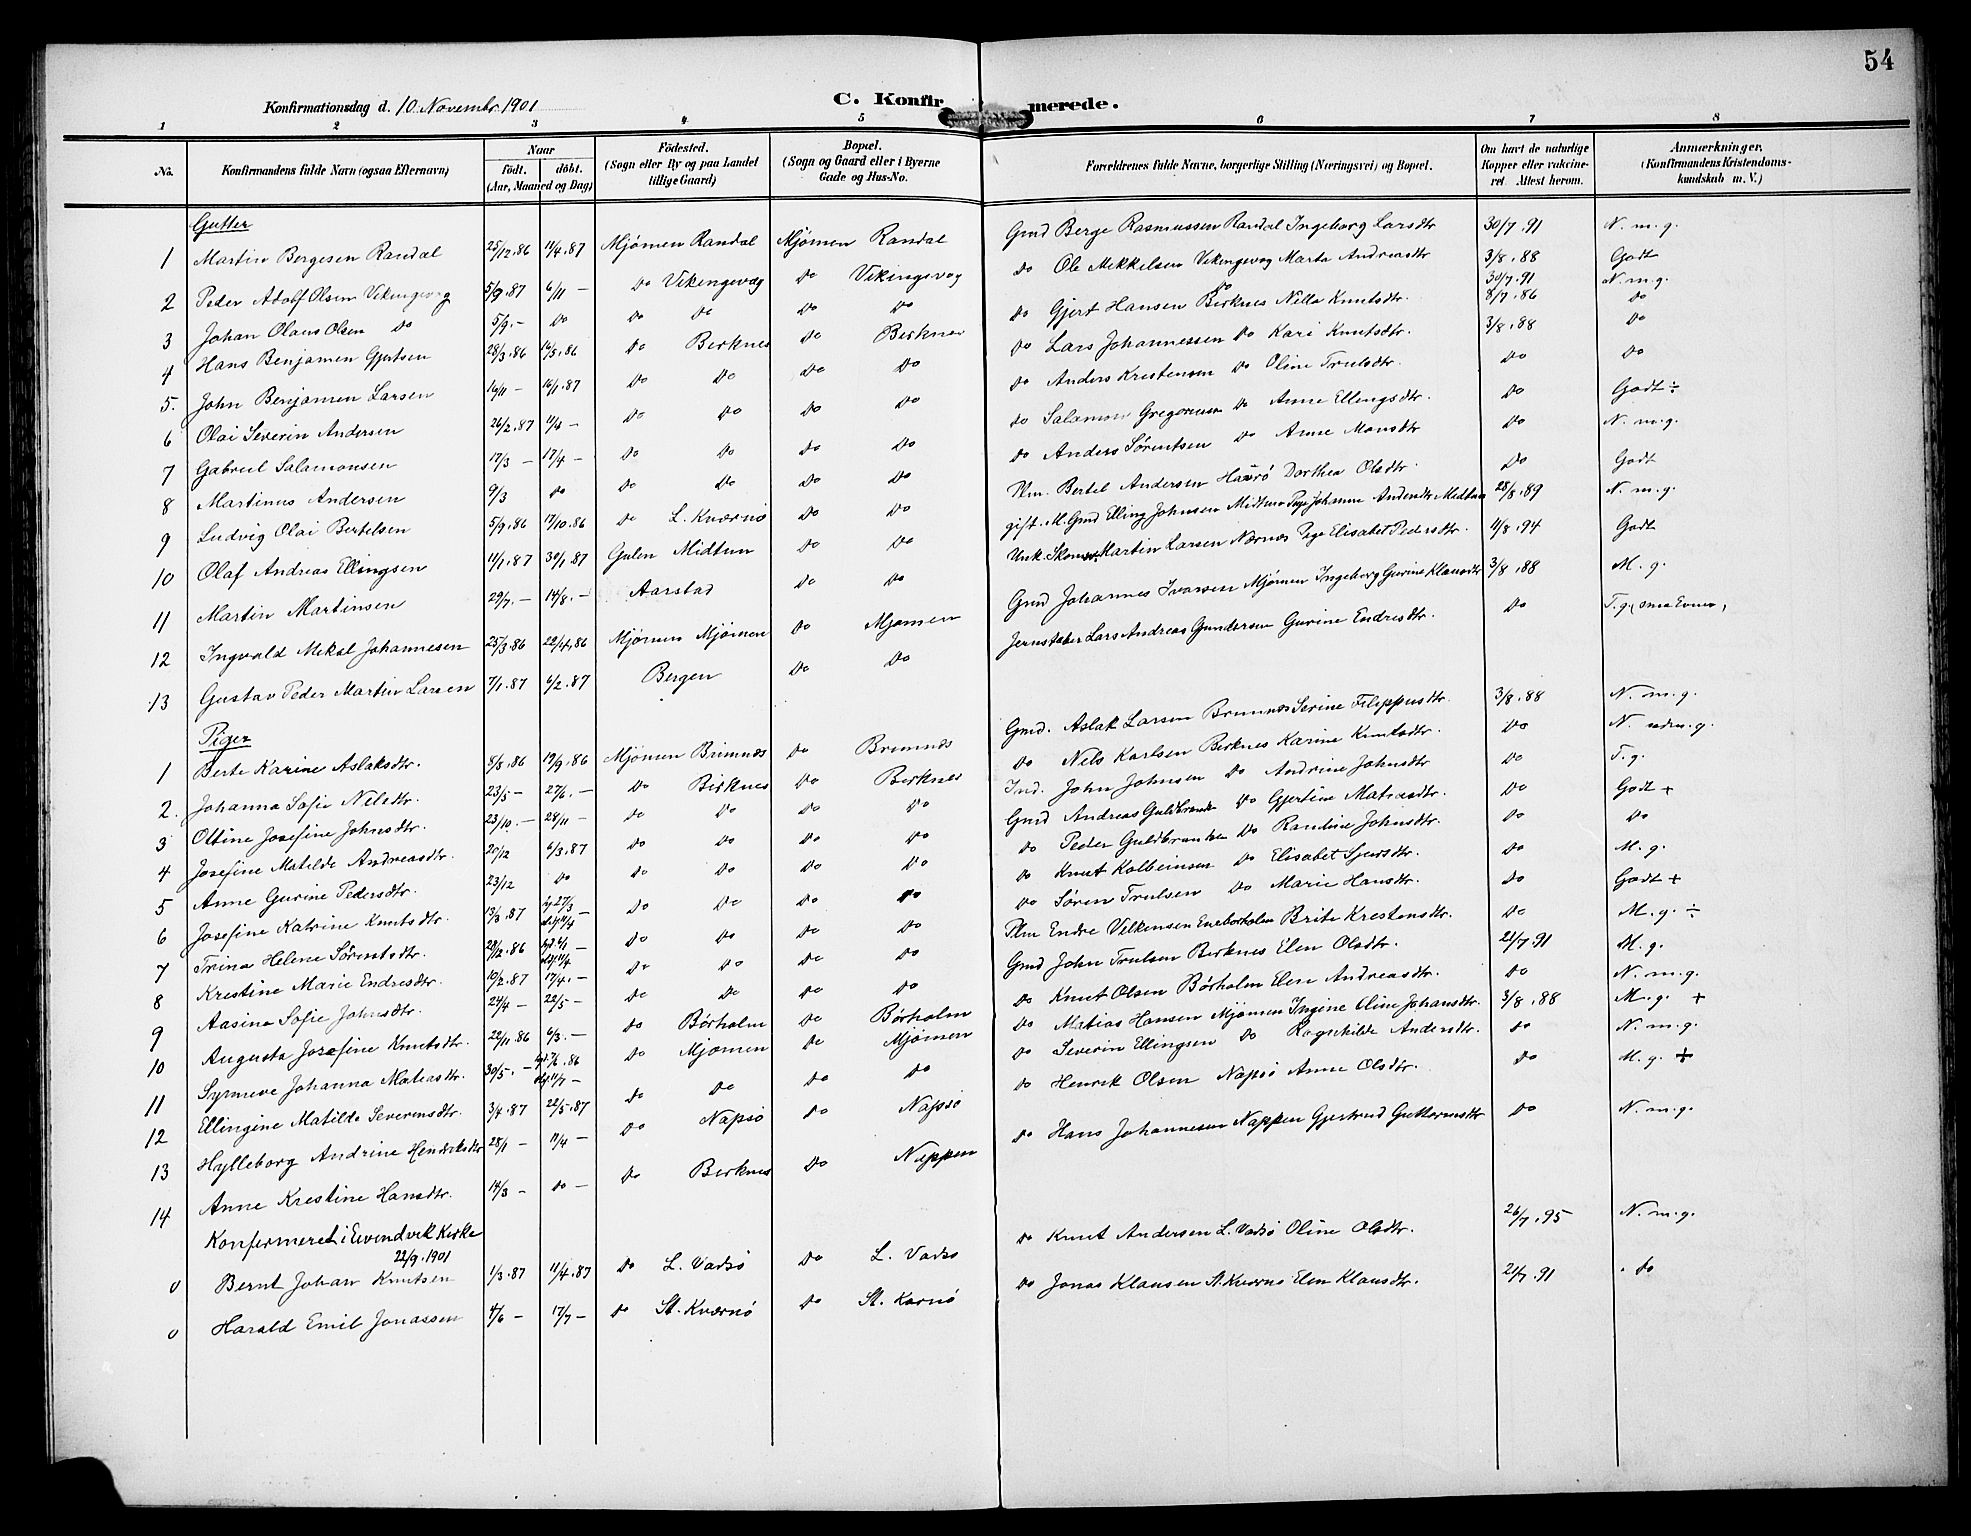 54
Konfirmationsdag d. 10 Novembr. 1901
C. Konfirmerede.
1 2 3 4 5 6 7 8
No. Konfirmandens fulde Navn (ogsaa Efternavn) Naar födt. döbt. (Aar, Maaned og Dag) Födested. (Sogn eller By og paa Landet tillige Gaard) Bopæl. (Sogn og Gaard eller i Byerne Gade og Hus-No. Forældrenes fulde Navne, borgerlige Stilling (Næringsvei) og Bopæl. Om havt de naturlige Kopper eller vaccineret Attest herom. Anmærkninger. (Konfirmandens Kristendomskundskab m. V.)
Gutter
1 Martin Bergesen Randal 25/12.86 11/4.87 Mjømen Randal Mjømen Randal Gmd Berge Rasmussen Randal Ingeborg Larsdtr 30/7.91 N. m. g.
2 Peder Adolf Olsen Vikingevog 5/9.87 6/11 - Do Vikingevog Do Vikingevog Do Ole Mikkelsen Vikingevog Marta Andreasdtr 3/8.88 Godt
3 Johan Olaus Olsen Do 5/9.- Do Do Do Do Do Do 30/7.91 N. m. g.
4 Hans Benjamen Gjertsen 28/3.86 16/5.86 Do Berknes Do Berknes Do Gjert Hansen Berknes Nille Knutsdtr. 8/7.86 Do
5. John Benjamen Larsen 16/11 - 16/1.87 Do Do Do Do Do Lars Johannessen Do Kari Knutsdtr. 3/8.88 Do
6 Olai Severin Andersen 26/2.87 11/4 - Do Do Do Do Do Anders Kristensen Do Oline Trulsdtr. Do Do
7 Gabriel Salamonsen 17/3 - 17/4 - Do Do Do Do Do Salamon Gregorsen Do Anne Ellingsdtr. Do Godt ÷
8 Martinus Andersen 9/3 Do Do Do Do Do Do Anders Sørentsen Do Anne Monsdtr Do N. m. g.
9 Ludvig Olai Bertelsen 5/9.86 17/10.86 Do L. Kværnø Do Do Plm. Bertel Andersen Haurø Dorthea Olsdtr. Do Godt
10 Olaf Andreas Ellingsen 11/1.87 30/1.87 Gulen Midtun Do Do gift. M. Gmd Elling Johnsen Midtun Pige Johanne Andersdtr Midtun 28/8.89 N. m. g.
11 Martin Martinsen 29/7.- 14/8.- Aarstad Do Do Unk. Skom. Martin Larsen Nærnes Pige Elisabet Pedersdtr. 11/8.94 Godt
12 Ingvald Mikal Johannesen 25/3.86 22/4.86 Mjømen Mjømen Do Mjømen Gmd Johannes Ivarsen Mjømen Ingeborg Gurine Klausdtr 3/8.88 M. g.
13 Gustav Peder Martin Larsen 7/1.87 6/2.87 Bergen Do Do Jernstøber Lars Andreas Gundersen Gurine Endresdtr. Do T. g. (smaa Evner)
Piger
1 Berte Karine Aslaksdtr. 8/8.86 19/9.86 Mjømen Brimnæs Do Brimnæs Gmd. Aslak Larsen Brimnes Serine Filippusdtr. 3/8.88 N. m. g.
2. Johanna Sofie Nelsdtr. 23/5- 27/6.- Do Birknes Do Berknes Do Nels Karlsen Berknes Karine Knutsdtr. Do N. udm. g.
3 Ottine Josefine Johnsdtr. 23/10.- 28/11 - Do Do Do Do Ind. John Johnsen Do Andrine Johnsdtr Do T. g.
4 Josefine Matilde Andreasdtr. 20/12 6/3.87 Do Do Do Do Gmd Andreas Guldbrands Do Gjertine Matiasdtr. Do Godt +
5 Anne Gurine Pedersdtr. 23/12 Do Do Do Do Do Do Peder Guldbrantsen Do Randine Johnsdtr. Do Do
6 Josefine Katrine Knutsdtr. 13/3.87 27/3 - Do Do Do Do Do Knut Kolbeinsen Do Elisabet Sjursdtr. Do M. g.
7 Trina Helene Sørentsdtr. 28/2.86 - Do Do Do Do Do Søren Trulsen Do Marie Hansdtr. Do Godt +
8 Krestine Marie Endresdtr. 10/2.87 17/4.- Do Do Do Do Plm Endre Velkensen Eneborholm Brite Krestensdtr. Do M. g. ÷
9 Aasina Sofie Johnsdtr. 24/4 - 22/5 - Do Do Do Do Gmd John Trulsen Berknes Elen Olsdtr. 21/7.91 M. g.
10 Augusta Josefine Knutsdtr. 22/11.86 6/3.- Do Børholm Do Børholm Do Knut Olsen Børholm Elen Andreasdtr. Do N. m. g.
11 Synneve Johanna Matiasdtr. 30/5.- 7/6.86 11/7 - Do Mjømen Do Mjømen Do Matias Hansen Mjømen Ingine Oline Johansdtr. 3/8.88 M. g. +
12 Ellingine Matilde Severinsdtr. 3/4.87 22/5.87 Do Do Do Do Do Severin Ellingsen Do Ragnhilde Andersdtr. Do N. m. g.
13 Hylleborg Andrine Henriksdtr 28/1 - 11/4 - Do Napsø Do Napsø Do Henrik Olsen Napsø Anne Olsdtr. Do M. g. +
14 Anne Krestine Hansdtr. 14/3 - Do - Do Berknes Do Nappen Do Hans Johannesen Nappen Gjertrud Guttormsdtr Do N. m. g.
Konfirmeret i Evendvik Kirke
22/9.1901
0 Bernt Johan Knutsen 1/3.87 11/4.87 Do L. Vadsø Do L. Vadsø Do Knut Andersen L. Vadsø Oline Olsdtr. 26/7.95 N. m. g.
0 Harald Emil Jonassen 4/6 - 17/7 - Do St. Kværnø Do St. Karnø Do Jonas Klausen St. Kværnø Elen Klausdtr. 21/7.91 Do